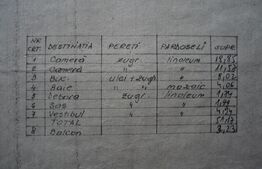 NR CRT. DESTINATIA PERETI PARDOSELI SUPR
1 Cameră zugr. linoleum 18,85
2 Cameră " "
3 Buc. ulei+zugr. " 8,02
4 Baie " " mozaic 4,06
5 Debara zugr. linoleum
6 Sas " "
7 Vestibul " "
TOTAL
8 Balcon 3,23